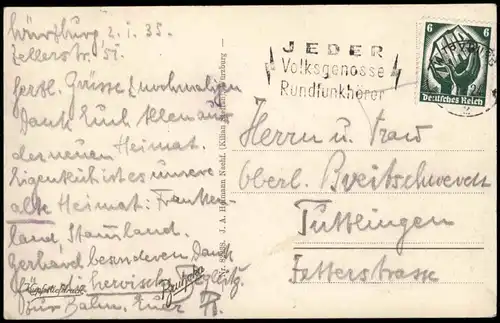 Würzburg 2.1.35.
Zellerstr. 51.
Herzl. Grüsse & nochmaligen
Dank Euch Allen aus
der neuen Heimat.
Eigentlich ist es unsere
alte Heimat: Franken-
land, Stammland.
Gerhard besonderen Dank
für
für Bahn. Euer
Kupfertiefdruck
J. A. Hofmann Nachf. (Kilian
JEDER
Volksgenosse
Rundfunkhörer
6
6
Deutsches Reich
Herrn u. Frau
Oberl. Breitschwerdt
Tuttlingen
Zellerstrasse